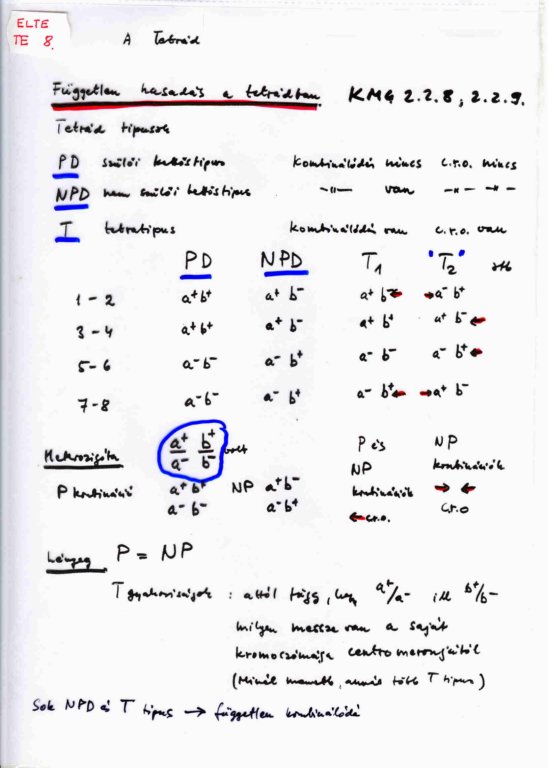 ELTE
TE 8.
A Tetrád
Független hasadás a tetrádban. KMG 2.2.8, 2.2.9.
Tetrád típusok
PD szülői kettőstípus kombinálódás nincs c.r.o. nincs
NPD nem szülői kettőstípus -"- van -"- -"-
T tetratípus kombinálódás van c.r.o. van
PD NPD T1 "T2" stb
1-2 a+b+ a+ b- a+ b- ← → a- b+
3-4 a+b+ a+ b- a+ b+ a+ b- ←
5-6 a-b- a- b+ a- b- a- b+ ←
7-8 a-b- a- b+ a- b+ ← → a+ b-
a+ b+
Heterozigóta a- b- volt P és NP
P kombináció a+ b+ NP a+b- NP kombinációk
a- b- a-b+ kombinációk → ←
← c.r.o. c.r.o
Lényeg P = NP
T gyakoriságok : attól függ, hogy a+/a- ill b+/b-
milyen messze van a saját
kromoszómája centromeronjától
(Minél messzebb, annál több T típus)
Sok NPD és T típus → független kombinálódás